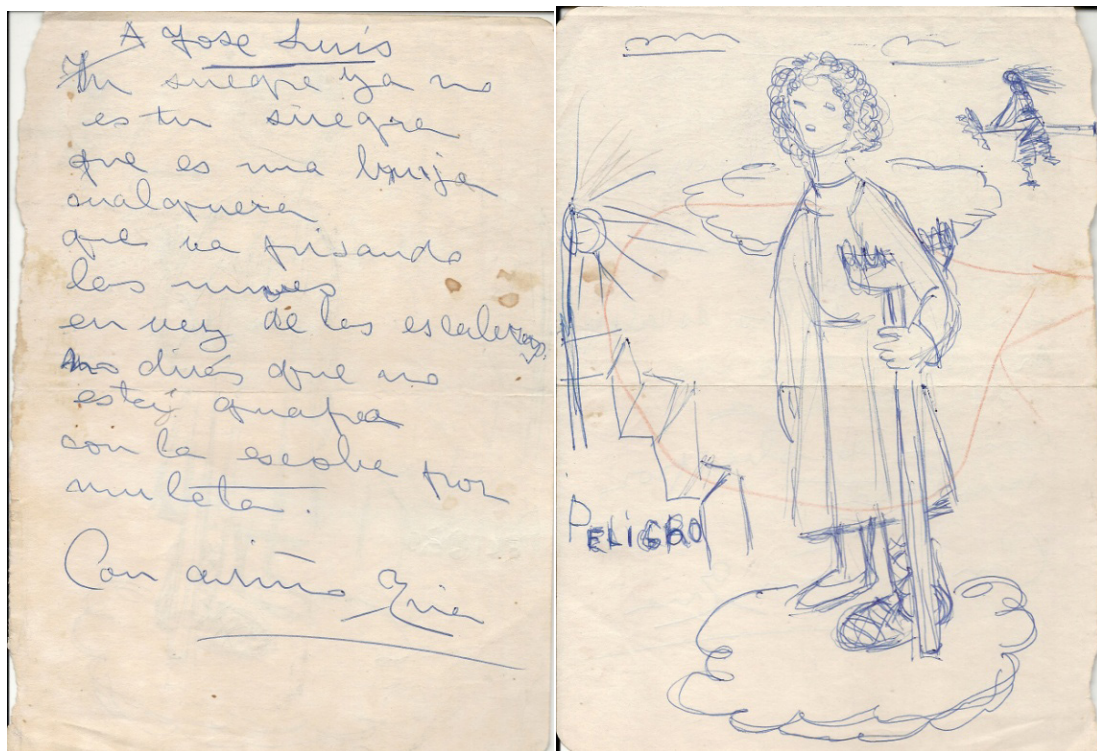 A Jose Luis
Tu suegra ya no
es tu suegra
que es una bruja
cualquiera
que va pisando
las nubes
en vez de las escaleras.
no dirás que no
está guapa
con la escoba por
muleta.
Con cariño
PELIGRO